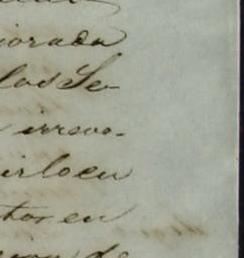 iorada
los Se-
irrevo-
irlo en
tos en
de